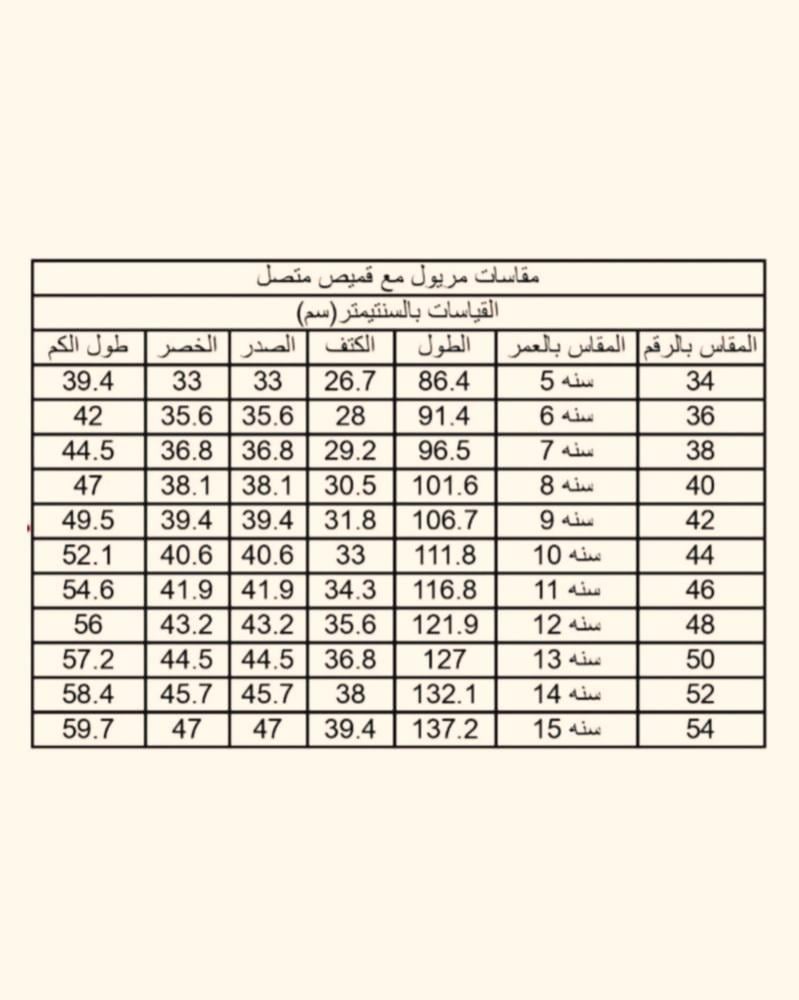 مقاسات مريول مع قميص متصل
القياسات بالسنتيمتر(سم)
المقاس بالرقم المقاس بالعمر الطول الكتف الصدر الخصر طول الكم
34 5 سنه 86.4 26.7 33 33 39.4
36 6 سنه 91.4 28 35.6 35.6 42
38 7 سنه 96.5 29.2 36.8 36.8 44.5
40 8 سنه 101.6 30.5 38.1 38.1 47
42 9 سنه 106.7 31.8 39.4 39.4 49.5
44 10 سنه 111.8 33 40.6 40.6 52.1
46 11 سنه 116.8 34.3 41.9 41.9 54.6
48 12 سنه 121.9 35.6 43.2 43.2 56
50 13 سنه 127 36.8 44.5 44.5 57.2
52 14 سنه 132.1 38 45.7 45.7 58.4
54 15 سنه 137.2 39.4 47 47 59.7